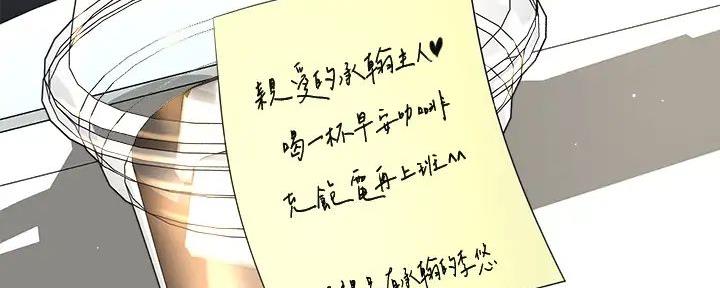 親愛的承翰主人♥
喝一杯早安咖啡
充飽電再上班^^
承翰的李悠